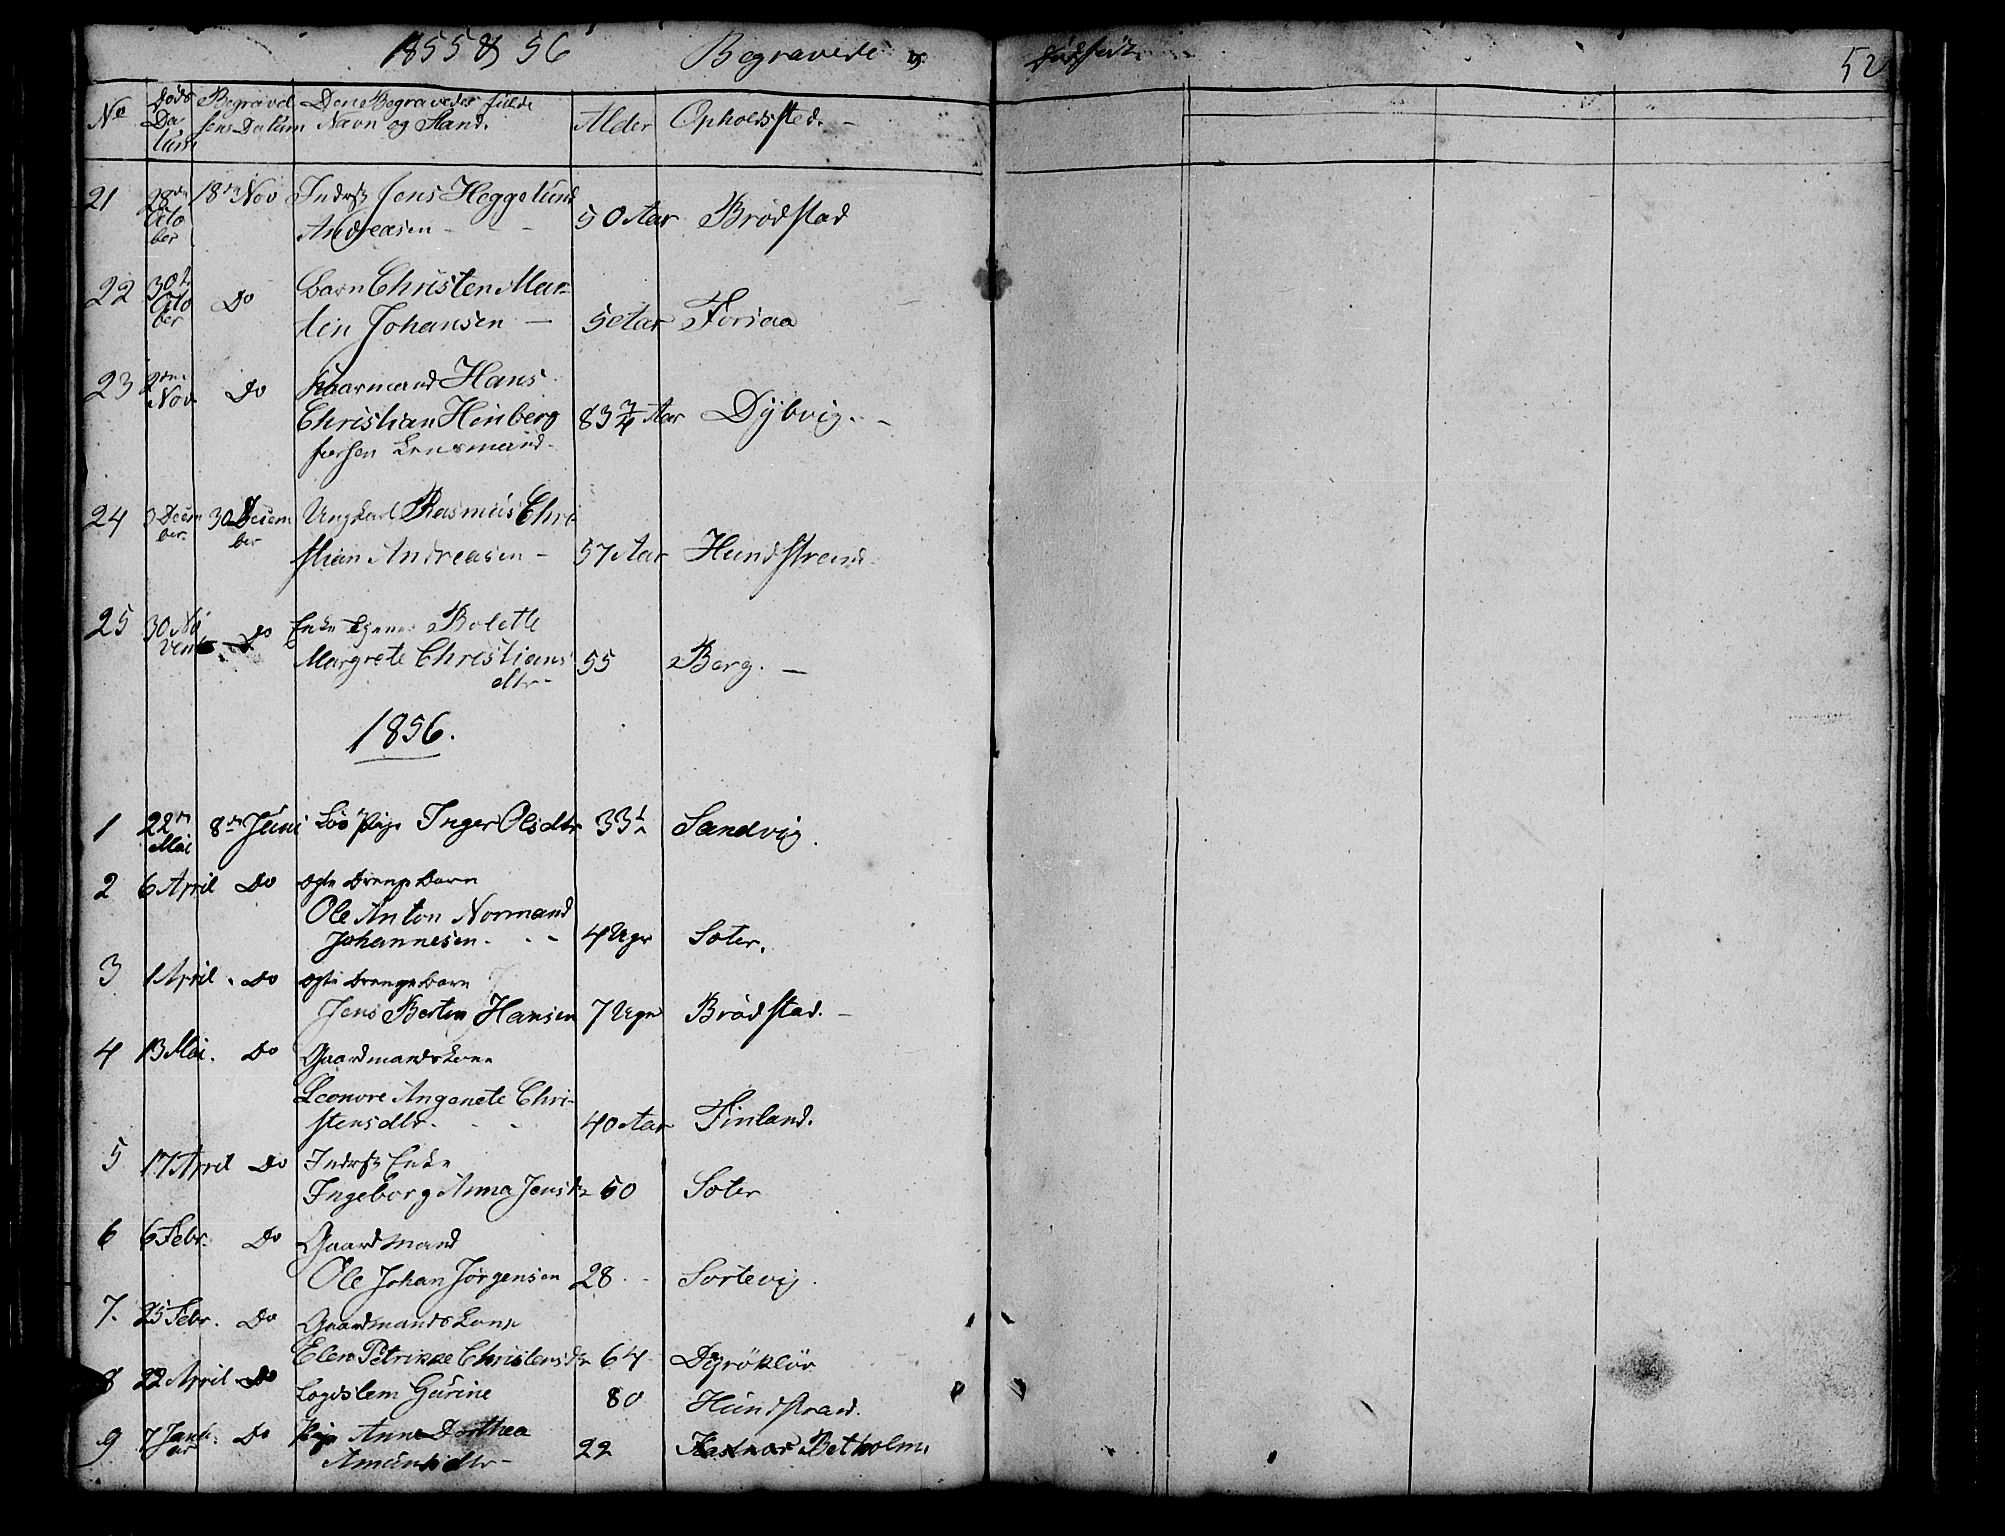 1855 & 56 Begravede og Dødfødte 52
No Døds Datum Begravelsens Datum Den Begravedes fulde Navn og Stand. Alder Opholdssted. -
21 28de Octo ber 18de Nov Inderst Jens Heggelund
Andreasen - - 50 Aar Brødstad
22 30te Octo ber Do Barn Christen Mar-
tin Johansen - 5 Aar Foriaa
23 2den Nov. Do Kaarmand Hans
Christian Heinberg 83 3/4 Aar Dybvig. -
Lensmand -
24 3 Decem ber 30 Decem ber Ungkarl Rasmus Chri-
stian Andreasen - 57 Aar Hundstrand
25 30 No vemb Do Enke Bolette
Margrete Christians 55 Berg. -
dtr -
1856.
1 22de Mai 8de Juni Løs Pige Inger Olsdtr 33 Sandvig.
2 6 April Do Ægte Drenge Barn
Ole Anton Normand
Johannesen. - - 4 Uger Soter.
3 1 April. Do Ægte Drenge Barn
Jens Bertin Hansen 7 Uger Brødstad. -
4 13 Mai. Do Gaardmandskone
Leonore Angenete Chri-
stensdtr. - - 40 Aar Finland.
5 17 April Do Inderst Enke
Ingeborg Anna Jensdr 50 Soter
6 6 Febr. Do Gaardmand
Ole Johan Jørgensen 28 - Sortevig.
7. 25 Febr. Do Gaardmandskone
Elen Petrikke Christensdr 64 Dyrøkløv
8 22 April Do Logislem Gurine 80 Hundstrand.
9 7 Janu ar Do Pige Anne Dorthea
Amundsdtr - 22 Betholm.